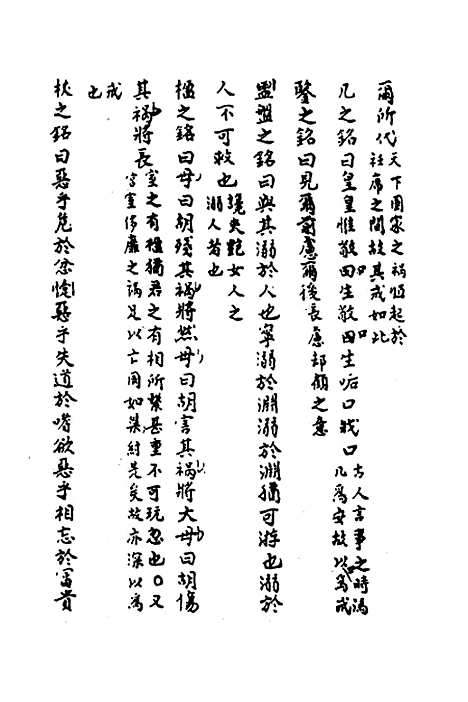 爾所代天下國家之禍恒起於
衽席之間故其戒如此
几之銘曰皇皇惟敬口生敬口生垢口戕口古人言事之時憑
几爲安故以爲戒
鑒之銘曰見爾前慮爾後長慮却顧之意
盥盤之銘曰與其溺於人也寧溺於淵溺於淵猶可游也溺於
人不可救也讒夫艷女人之
溺人者也
楹之銘曰毋曰胡殘其禍將然毋曰胡害其禍將大毋曰胡傷
其禍將長室之有楹猶君之有相所繫甚重不可玩忽也〇又
宮室侈靡之禍足以亡國如桀紂是矣故亦深以爲
戒
也
杖之銘曰惡乎危於忿懥惡乎失道於嗜欲惡乎相忘於富貴